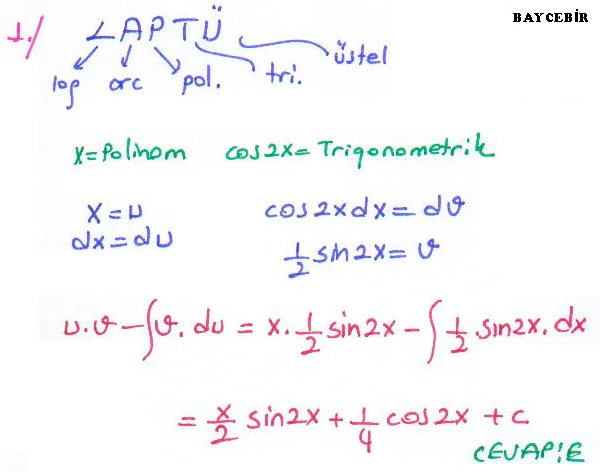 BAYCEBİR
1./ LAPTÜ
log arc pol. tri. üstel
x=Polinom cos2x=Trigonometrik
x=u cos2xdx=dv
dx=du 1/2 sin2x=v
u.v-∫v.du = x.1/2 sin2x - ∫1/2.sin2x.dx
= x/2 sin2x + 1/4 cos2x + c
CEVAP:E